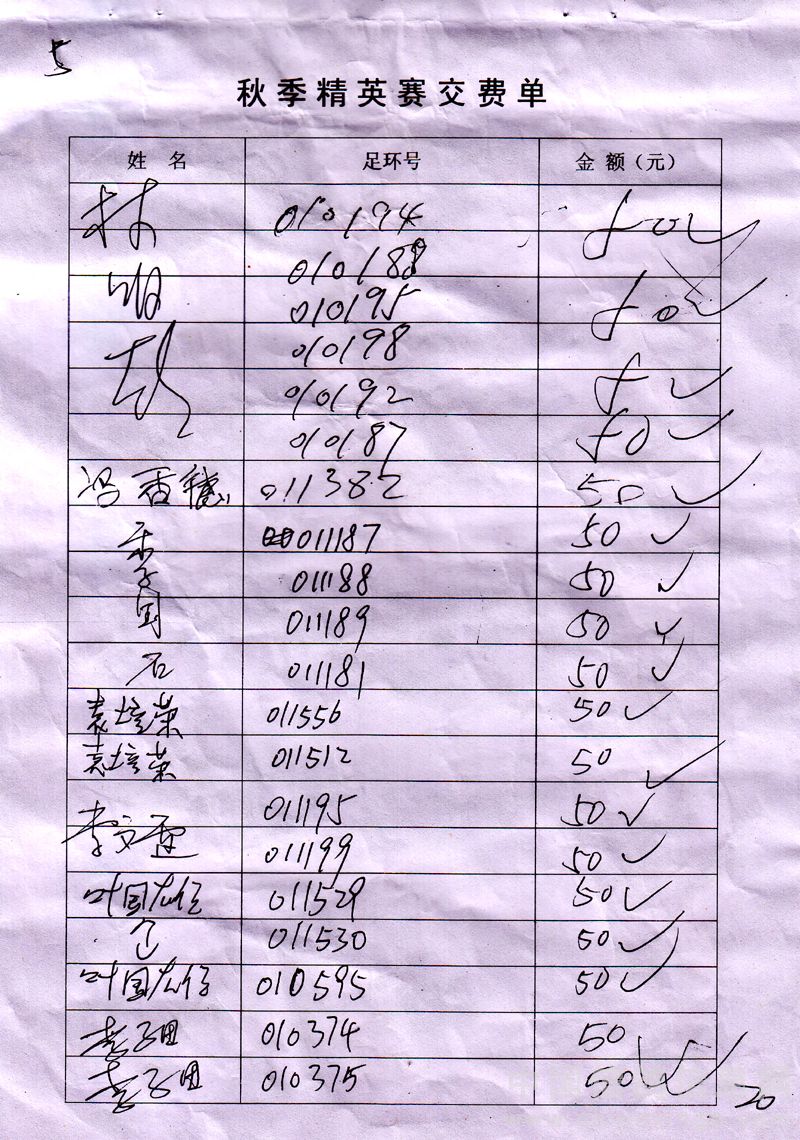 5
秋季精英赛交费单
姓 名 足环号 金 额（元）
林 010194 50
010188
明 010195 50
010198
010192
010187 50
冯香穗 011382 50
011187 50
李 011188 50
国 011189 50
石 011181 50
袁培荣 011556 50
袁培荣 011512 50
李文运 011195 50
011199 50
叶国雄仔 011529 50
011530 50
叶国雄仔 010595 50
李子田 010374 50
李子田 010375 50
20